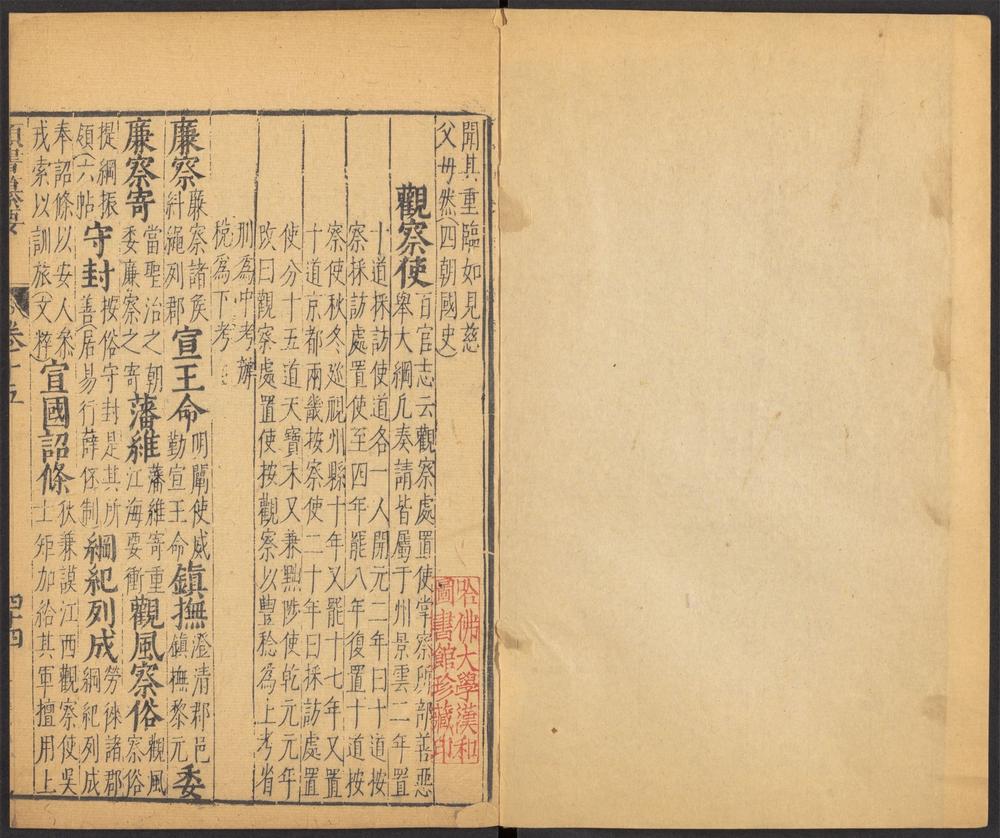 聞其重臨如見慈
父母然(四朝國史)
觀察使百官志云觀察處置使掌察所部善惡
舉大綱凡奏請皆屬于州景雲二年置
十道採訪使道各一人開元二年曰十道按
察採訪處置使至四年罷八年復置十道按
察使秋冬巡視州縣十年又罷十七年又置
十道京都兩畿按察使二十年曰採訪處置
使分十五道天寶末又兼黜陟使乾元元年
改曰觀察處置使按觀察以豐稔為上考省
刑為中考辦
稅為下考
廉察廉察諸侯
糾繩列郡宣王命明閫使威
勤宣王命鎮撫澄清郡邑
鎮撫黎元委
廉察寄當聖治之朝
委廉察之寄藩維藩維寄重
江海要衝觀風察俗觀風
察俗
提綱振
領(六帖守封按俗守封是其所
善(居易行薛伾制綱紀列成勞徠諸郡
綱紀列成
奉詔條以安人祭
戎索以訓旅(文粹宣國詔條狄兼謨江西觀察使吳
士矩加給其軍擅用上
卷十五
四十四
哈佛大學漢和
圖書館珍藏印